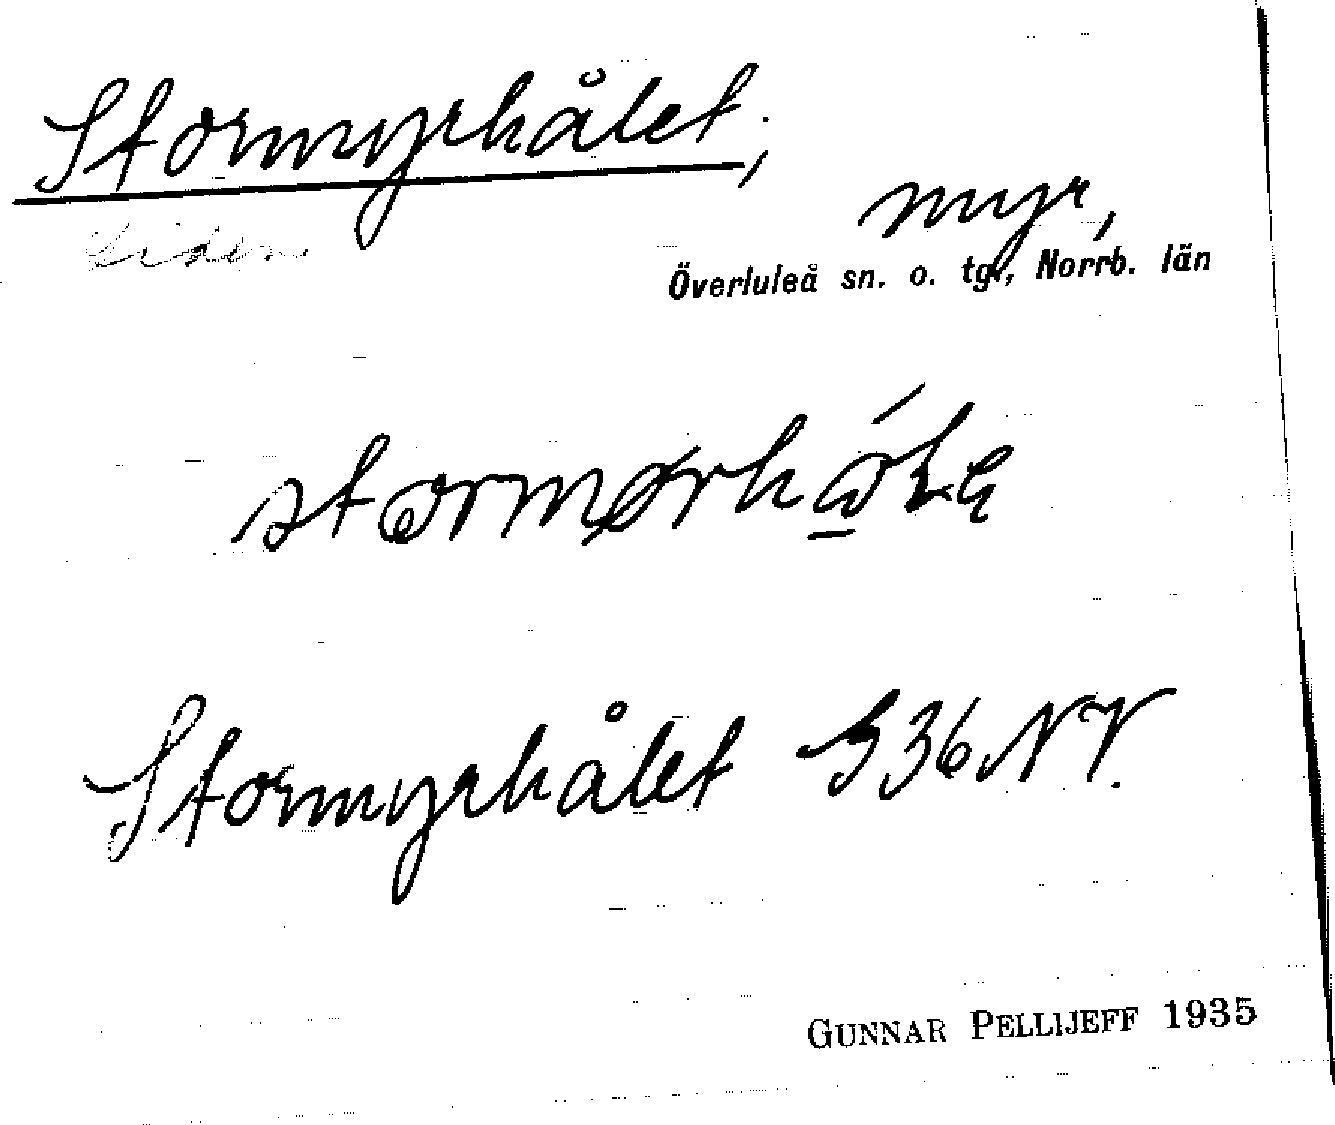 Stormyrhålet,
myr,
Liden
Överluleå sn. o. tg., Norrb. län
Stormyrhålet G36NV.
GUNNAR PELLIJEFF 1935